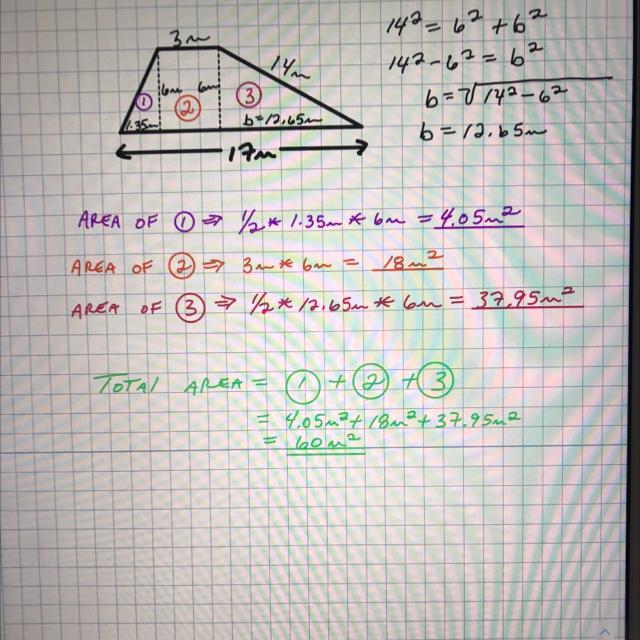 3m
14m
6m 6m
① ② ③
1.35m b=12.65m
17m
14² = 6² + b²
14² - 6² = b²
b = √14² - 6²
b = 12.65m
AREA OF ① ⇒ 1/2 * 1.35m * 6m = 4.05m²
AREA OF ② ⇒ 3m * 6m = 18m²
AREA OF ③ ⇒ 1/2 * 12.65m * 6m = 37.95m²
TOTAL AREA = ① + ② + ③
= 4.05m² + 18m² + 37.95m²
= 60m²